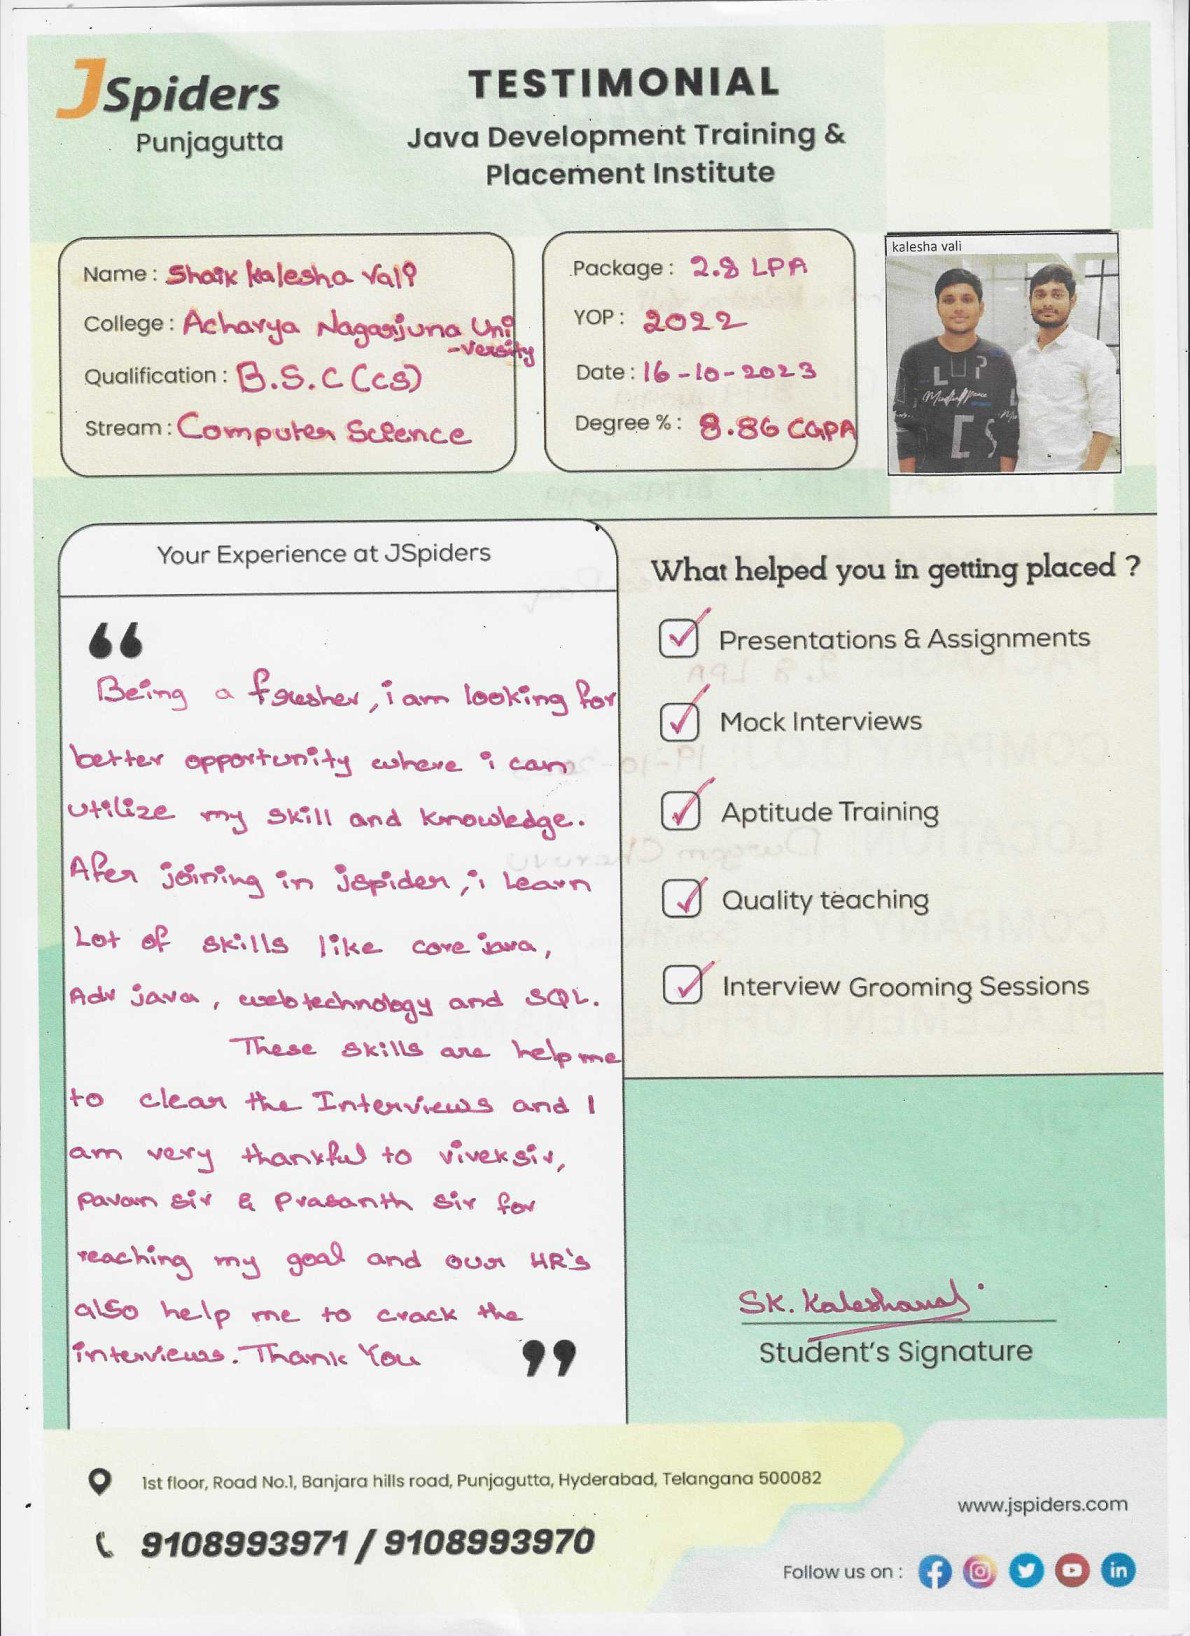 JSpiders
Punjagutta
TESTIMONIAL
Java Development Training &
Placement Institute
Name : Shaik Kalesha Vali
College : Acharya Nagarjuna Uni
-versity
Qualification : B.S.C (CS)
Stream : Computer Science
Package : 2.8 LPA
YOP : 2022
Date : 16-10-2023
Degree % : 8.86 CGPA
kalesha vali
Your Experience at JSpiders
“
Being a fresher, i am looking for
better opportunity where i can
utilize my skill and knowledge.
Afer joining in jspider, i learn
Lot of skills like core java,
Adv java, web technology and SQL.
These skills are help me
to clear the Interviews and I
am very thankful to vivek sir,
pavan sir & Prasanth sir for
reaching my goal and our HR's
also help me to crack the
interviews. Thank You
”
What helped you in getting placed ?
Presentations & Assignments
Mock Interviews
Aptitude Training
Quality teaching
Interview Grooming Sessions
SK. Kaleshavali
Student's Signature
1st floor, Road No.1, Banjara hills road, Punjagutta, Hyderabad, Telangana 500082
9108993971 / 9108993970
www.jspiders.com
Follow us on :